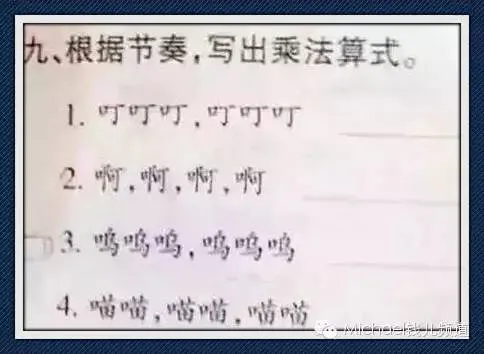 九、根据节奏,写出乘法算式。
1. 叮叮叮,叮叮叮
2. 啊,啊,啊,啊
3. 呜呜呜,呜呜呜
4. 喵喵,喵喵,喵喵
Michael钱儿频道